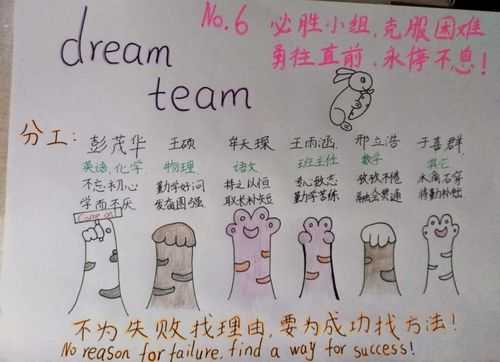 dream
team
No.6 必胜小组,克服困难
勇往直前,永停不息!
分工: 彭茂华 王硕 牟天琛 王雨涵 邢立浩 于喜群
英语、化学 物理 语文 班主任 数学 其它
不忘初心 勤学好问 持之以恒 专心致志 孜孜不倦 水滴石穿
学而不厌 发奋图强 取长补短 勤学苦练 融会贯通 将勤补拙
Come on
不为失败找理由,要为成功找方法!
No reason for failure, find a way for success!